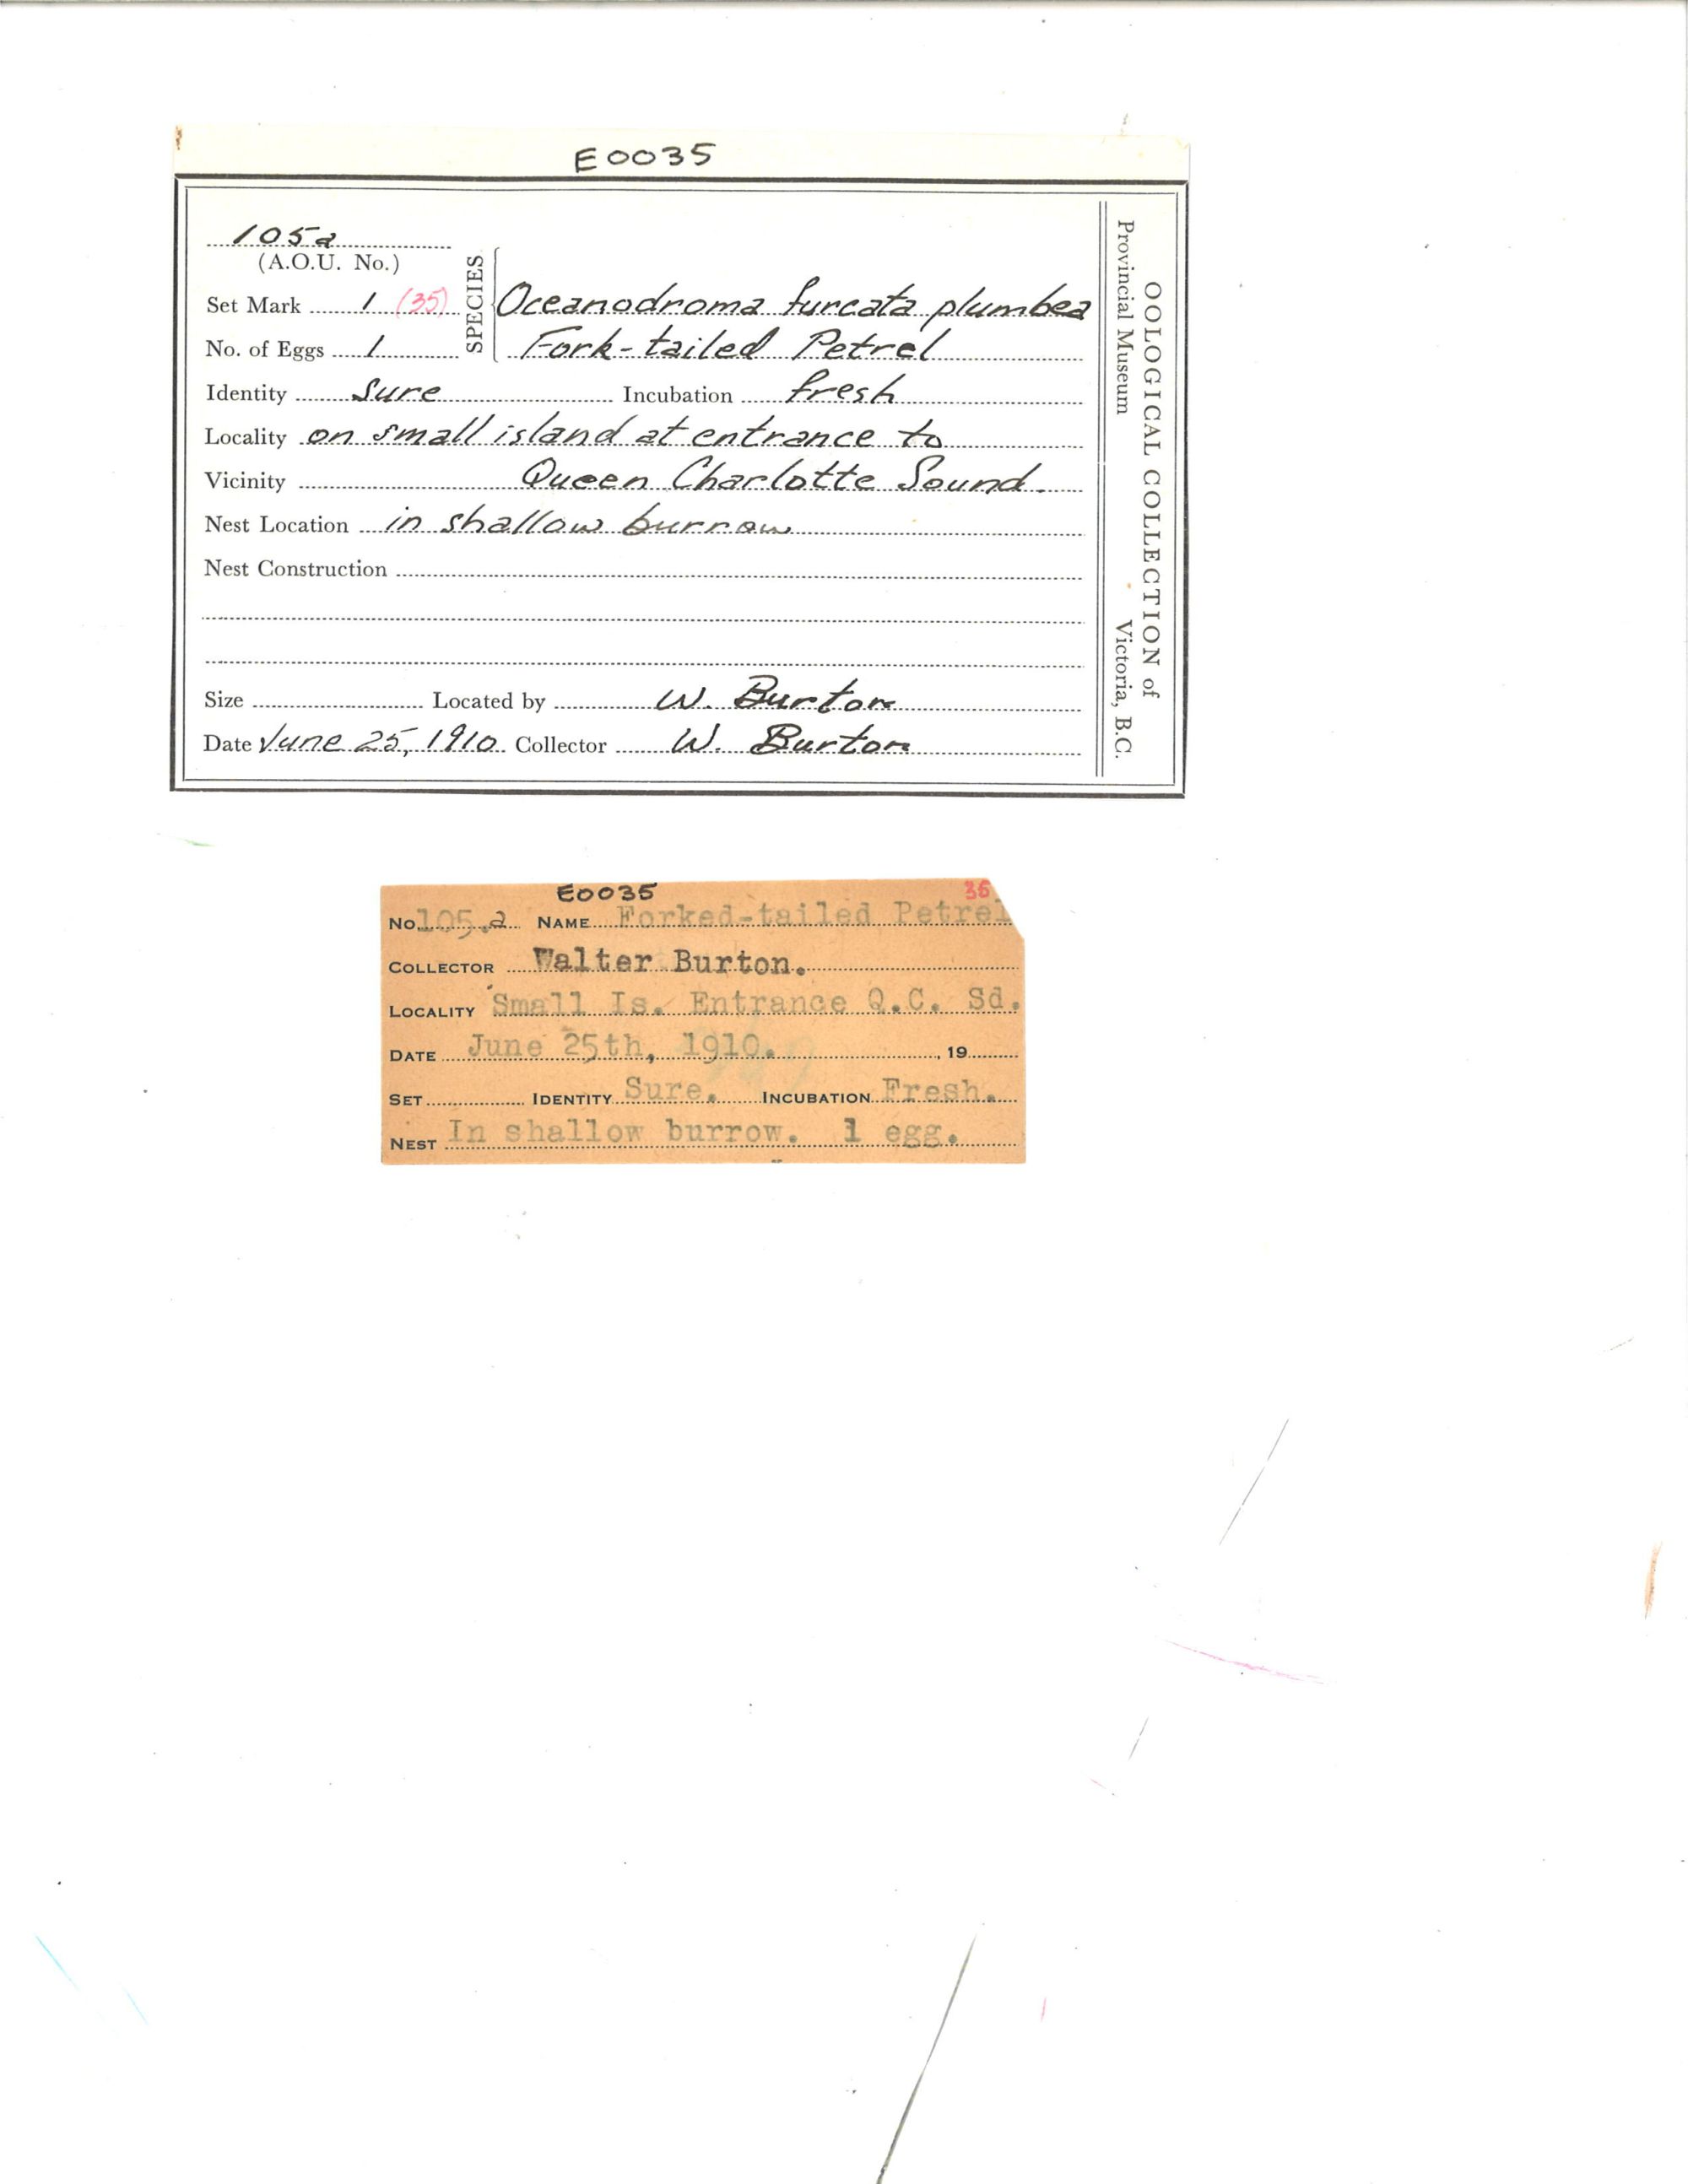 E0035
105a
(A.O.U. No.)
Set Mark 1 (35)
No. of Eggs 1
SPECIES
Oceanodroma furcata plumbea
Fork-tailed Petrel
Identity Sure Incubation fresh
Locality on small island at entrance to
Vicinity Queen Charlotte Sound.
Nest Location in shallow burrow
Nest Construction
Size Located by W. Burton
Date June 25, 1910 Collector W. Burton
OOLOGICAL COLLECTION of
Provincial Museum Victoria, B.C.
E0035 35
No. 105.a NAME Forked-tailed Petrel
COLLECTOR Walter Burton.
LOCALITY Small Is. Entrance Q.C. Sd.
DATE June 25th, 1910. , 19
SET IDENTITY Sure. INCUBATION Fresh.
NEST In shallow burrow. 1 egg.